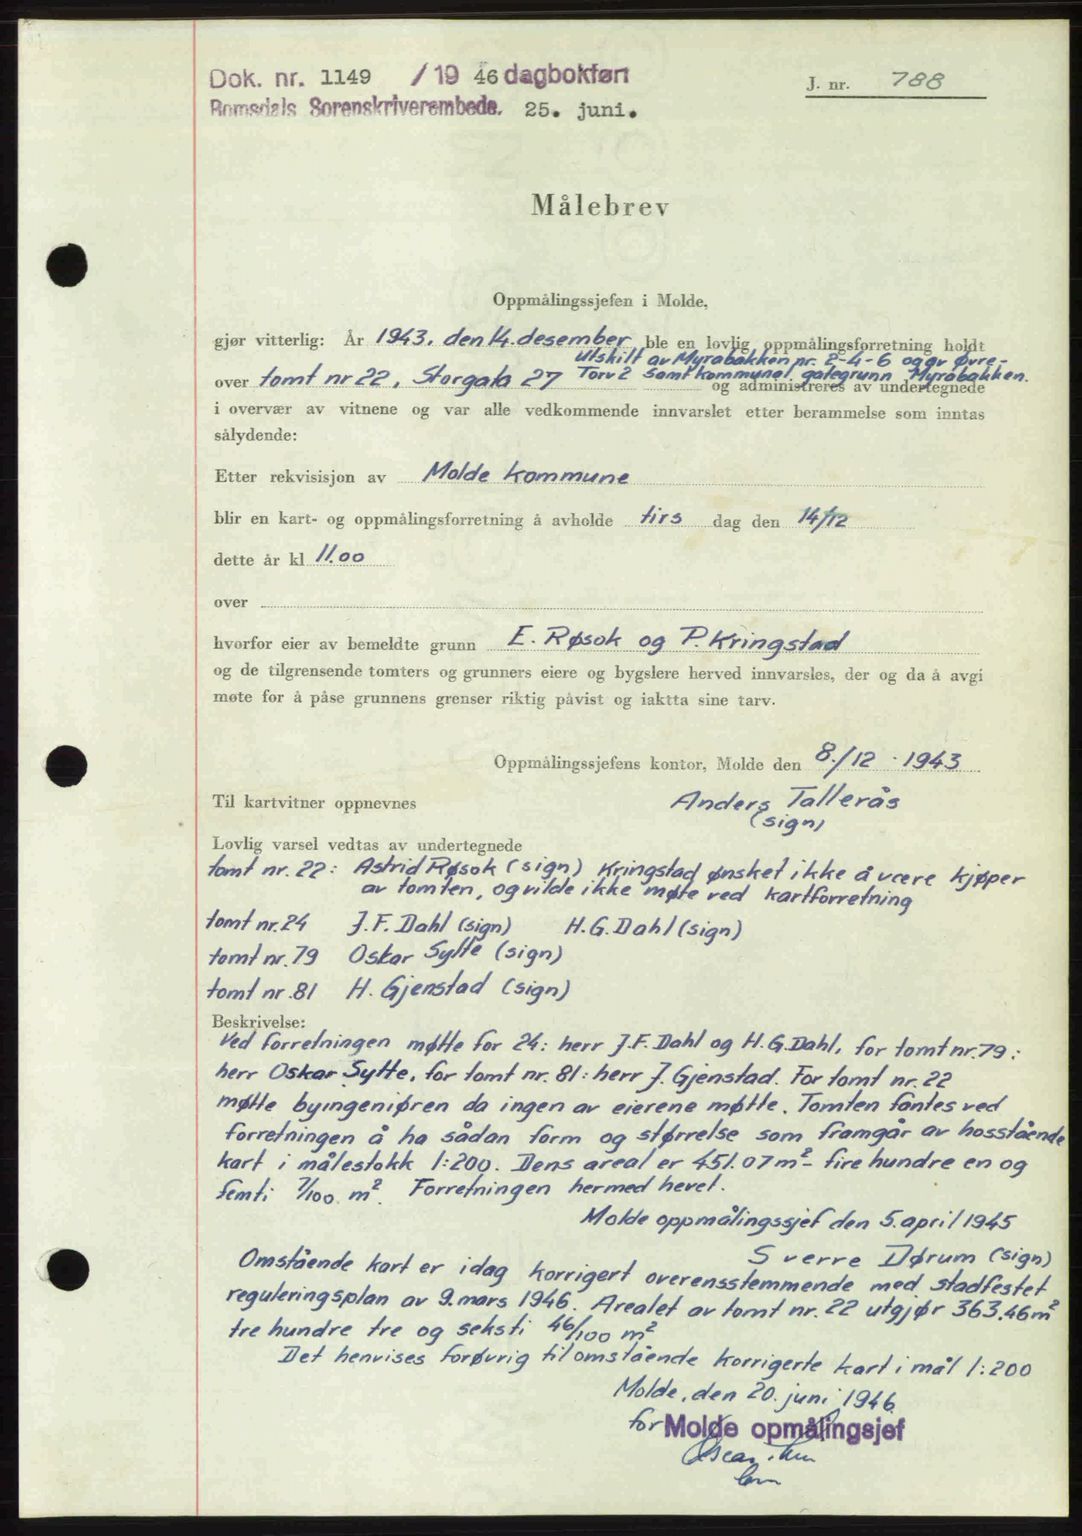 Dok. nr. 1149 / 19 46 dagbokført
J. nr. 788
Romsdals Sorenskriverembede. 25. juni.
Målebrev
Oppmålingssjefen i Molde,
gjør vitterlig: År 1943, den 14. desember ble en lovlig oppmålingsforretning holdt
utskilt av Myrabakken nr. 2-4-6 og av Øvre-
over tomt nr 22, Storgata 27 Torv 2 samt kommunal gategrunn Myrabakken.
og administreres av undertegnede
i overvær av vitnene og var alle vedkommende innvarslet etter berammelse som inntas
sålydende:
Etter rekvisisjon av Molde kommune
blir en kart- og oppmålingsforretning å avholde tirs dag den 14/12
dette år kl 11.00
over
hvorfor eier av bemeldte grunn E. Røsok og P. Kringstad
og de tilgrensende tomters og grunners eiere og bygslere herved innvarsles, der og da å avgi
møte for å påse grunnens grenser riktig påvist og iaktta sine tarv.
Oppmålingssjefens kontor, Molde den 8./12 · 1943
Til kartvitner oppnevnes Anders Tallerås
(sign)
Lovlig varsel vedtas av undertegnede
tomt nr. 22: Astrid Røsok (sign) Kringstad ønsket ikke å være kjøper
av tomten, og vilde ikke møte ved kartforretning
tomt nr. 24 J. F. Dahl (sign) H. G. Dahl (sign)
tomt nr. 79 Oskar Sylte (sign)
tomt nr. 81 H. Gjenstad (sign)
Beskrivelse:
Ved forretningen møtte for 24: herr J.F. Dahl og H.G. Dahl, for tomt nr. 79:
herr Oskar Sylte, for tomt nr. 81: herr J. Gjenstad. For tomt nr. 22
møtte byingeniøren da ingen av eierene møtte. Tomten fantes ved
forretningen å ha sådan form og størrelse som framgår av hosstående
kart i målestokk 1:200. Dens areal er 451.07 m² - fire hundre en og
femti 7/100 m². Forretningen hermed hevet.
Molde oppmålingssjef den 5. april 1945
Sverre Dørum (sign)
Omstående kart er idag korrigert overensstemmende med stadfestet
reguleringsplan av 9. mars 1946. Arealet av tomt nr. 22 utgjør 363.46 m²
tre hundre tre og seksti 46/100 m²
Det henvises forøvrig til omstående korrigerte kart i mål 1:200
Molde, den 20. juni 1946
for Molde opmålingsjef